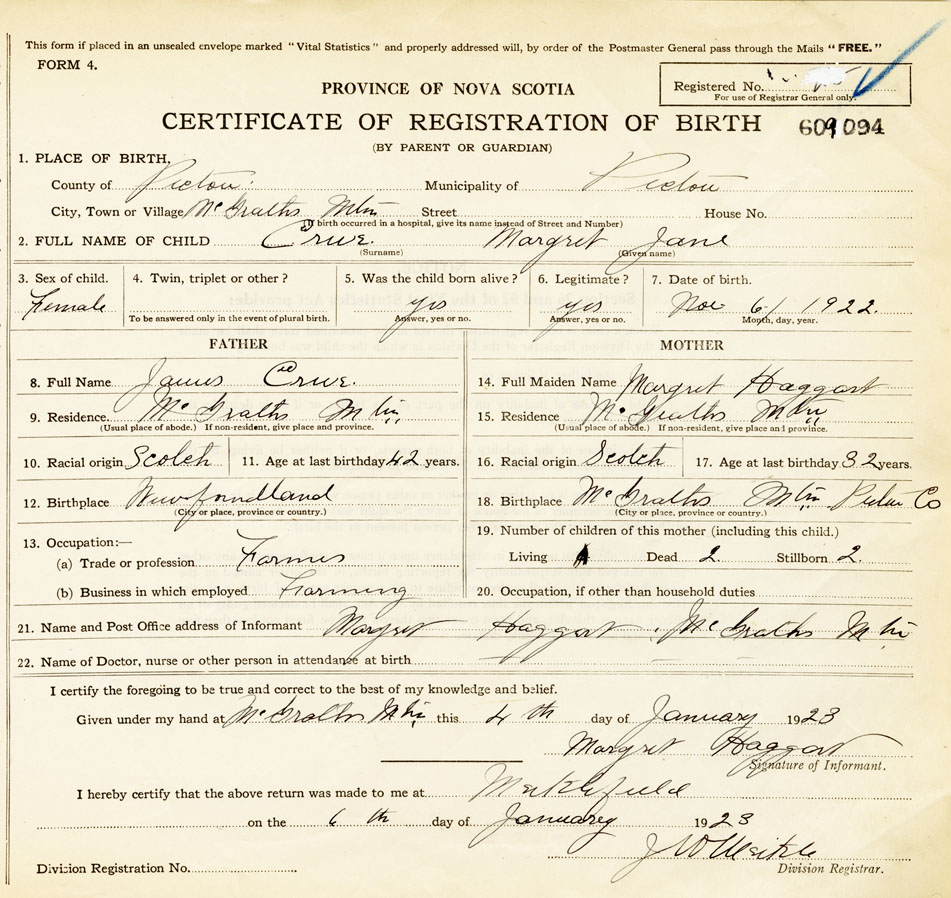 This form if placed in an unsealed envelope marked "Vital Statistics" and properly addressed will, by order of the Postmaster General pass through the Mails "FREE."
FORM 4.
Registered No.
For use of Registrar General only.
PROVINCE OF NOVA SCOTIA
CERTIFICATE OF REGISTRATION OF BIRTH
609094
(BY PARENT OR GUARDIAN)
1. PLACE OF BIRTH,
County of Pictou Municipality of Pictou
City, Town or Village McGraths Mtn Street House No.
(If birth occurred in a hospital, give its name instead of Street and Number)
2. FULL NAME OF CHILD Crwe. Margret Jane
(Surname) (Given name)
3. Sex of child. 4. Twin, triplet or other? 5. Was the child born alive? 6. Legitimate? 7. Date of birth.
Female yes yes Nov 6/ 1922.
To be answered only in the event of plural birth. Answer, yes or no. Answer, yes or no. Month, day, year.
FATHER MOTHER
8. Full Name James Crwe. 14. Full Maiden Name Margret Haggart
9. Residence. McGraths Mtn 15. Residence McGraths Mtn
(Usual place of abode.) If non-resident, give place and province. (Usual place of abode.) If non-resident, give place and province.
10. Racial origin Scotch 11. Age at last birthday 42 years. 16. Racial origin Scotch 17. Age at last birthday 32 years.
12. Birthplace Newfoundland 18. Birthplace McGraths Mtn Pictou Co
(City or place, province or country.) (City or place, province or country.)
13. Occupation:— 19. Number of children of this mother (including this child.)
(a) Trade or profession Farmer Living Dead 2. Stillborn 2.
(b) Business in which employed Farming 20. Occupation, if other than household duties
21. Name and Post Office address of Informant Margret Haggart, McGraths Mtn
22. Name of Doctor, nurse or other person in attendance at birth
I certify the foregoing to be true and correct to the best of my knowledge and belief.
Given under my hand at McGraths Mtn this 4th day of January 1923
Margret Haggart
Signature of Informant.
I hereby certify that the above return was made to me at Meiklefield
on the 6th day of January 1923
J W Meikle
Division Registration No. Division Registrar.